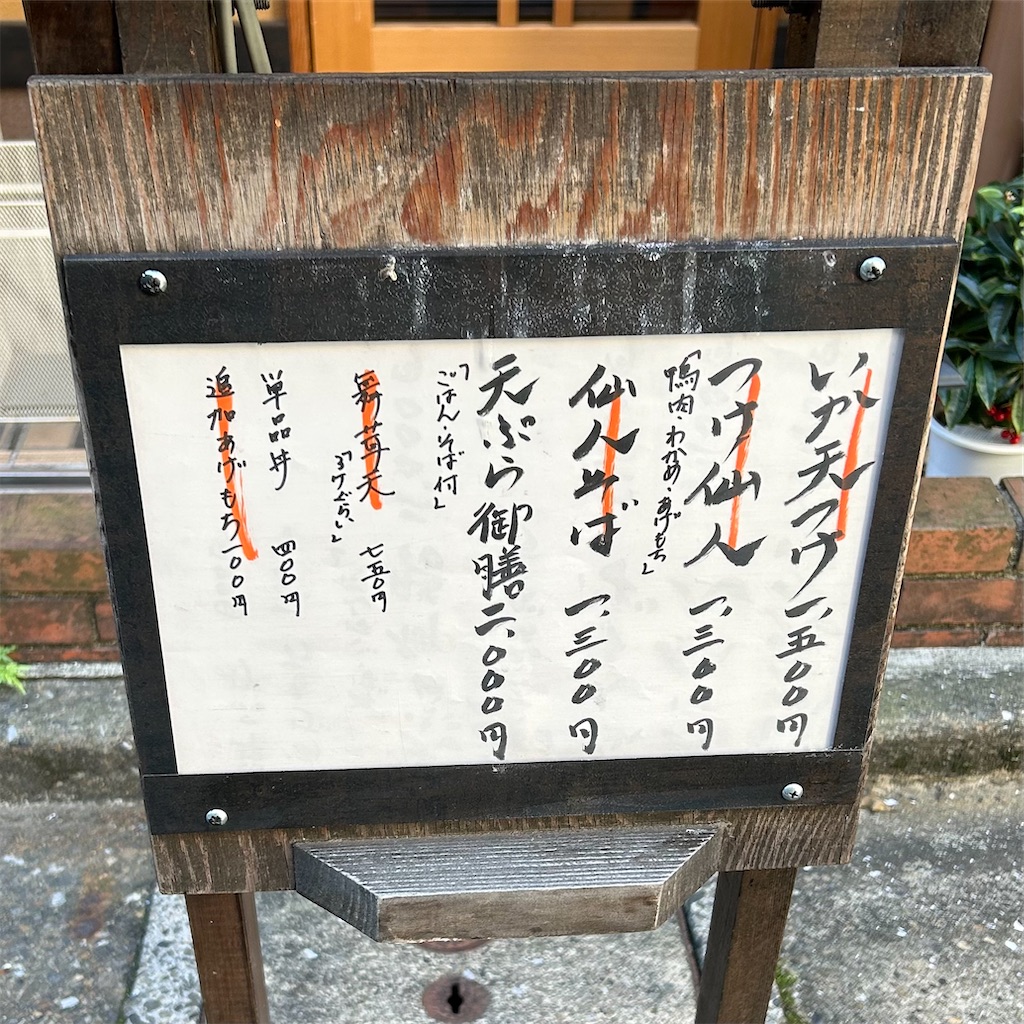 いか天つけ 一、五〇〇円
つけ仙人 一、三〇〇円
「鴨肉・わかめ・あげもち」
仙人そば 一、三〇〇円
天ぷら御膳 二、〇〇〇円
「ごはん・そば付」
舞茸天 七五〇円
単品丼 四〇〇円
追加あげもち 一〇〇円